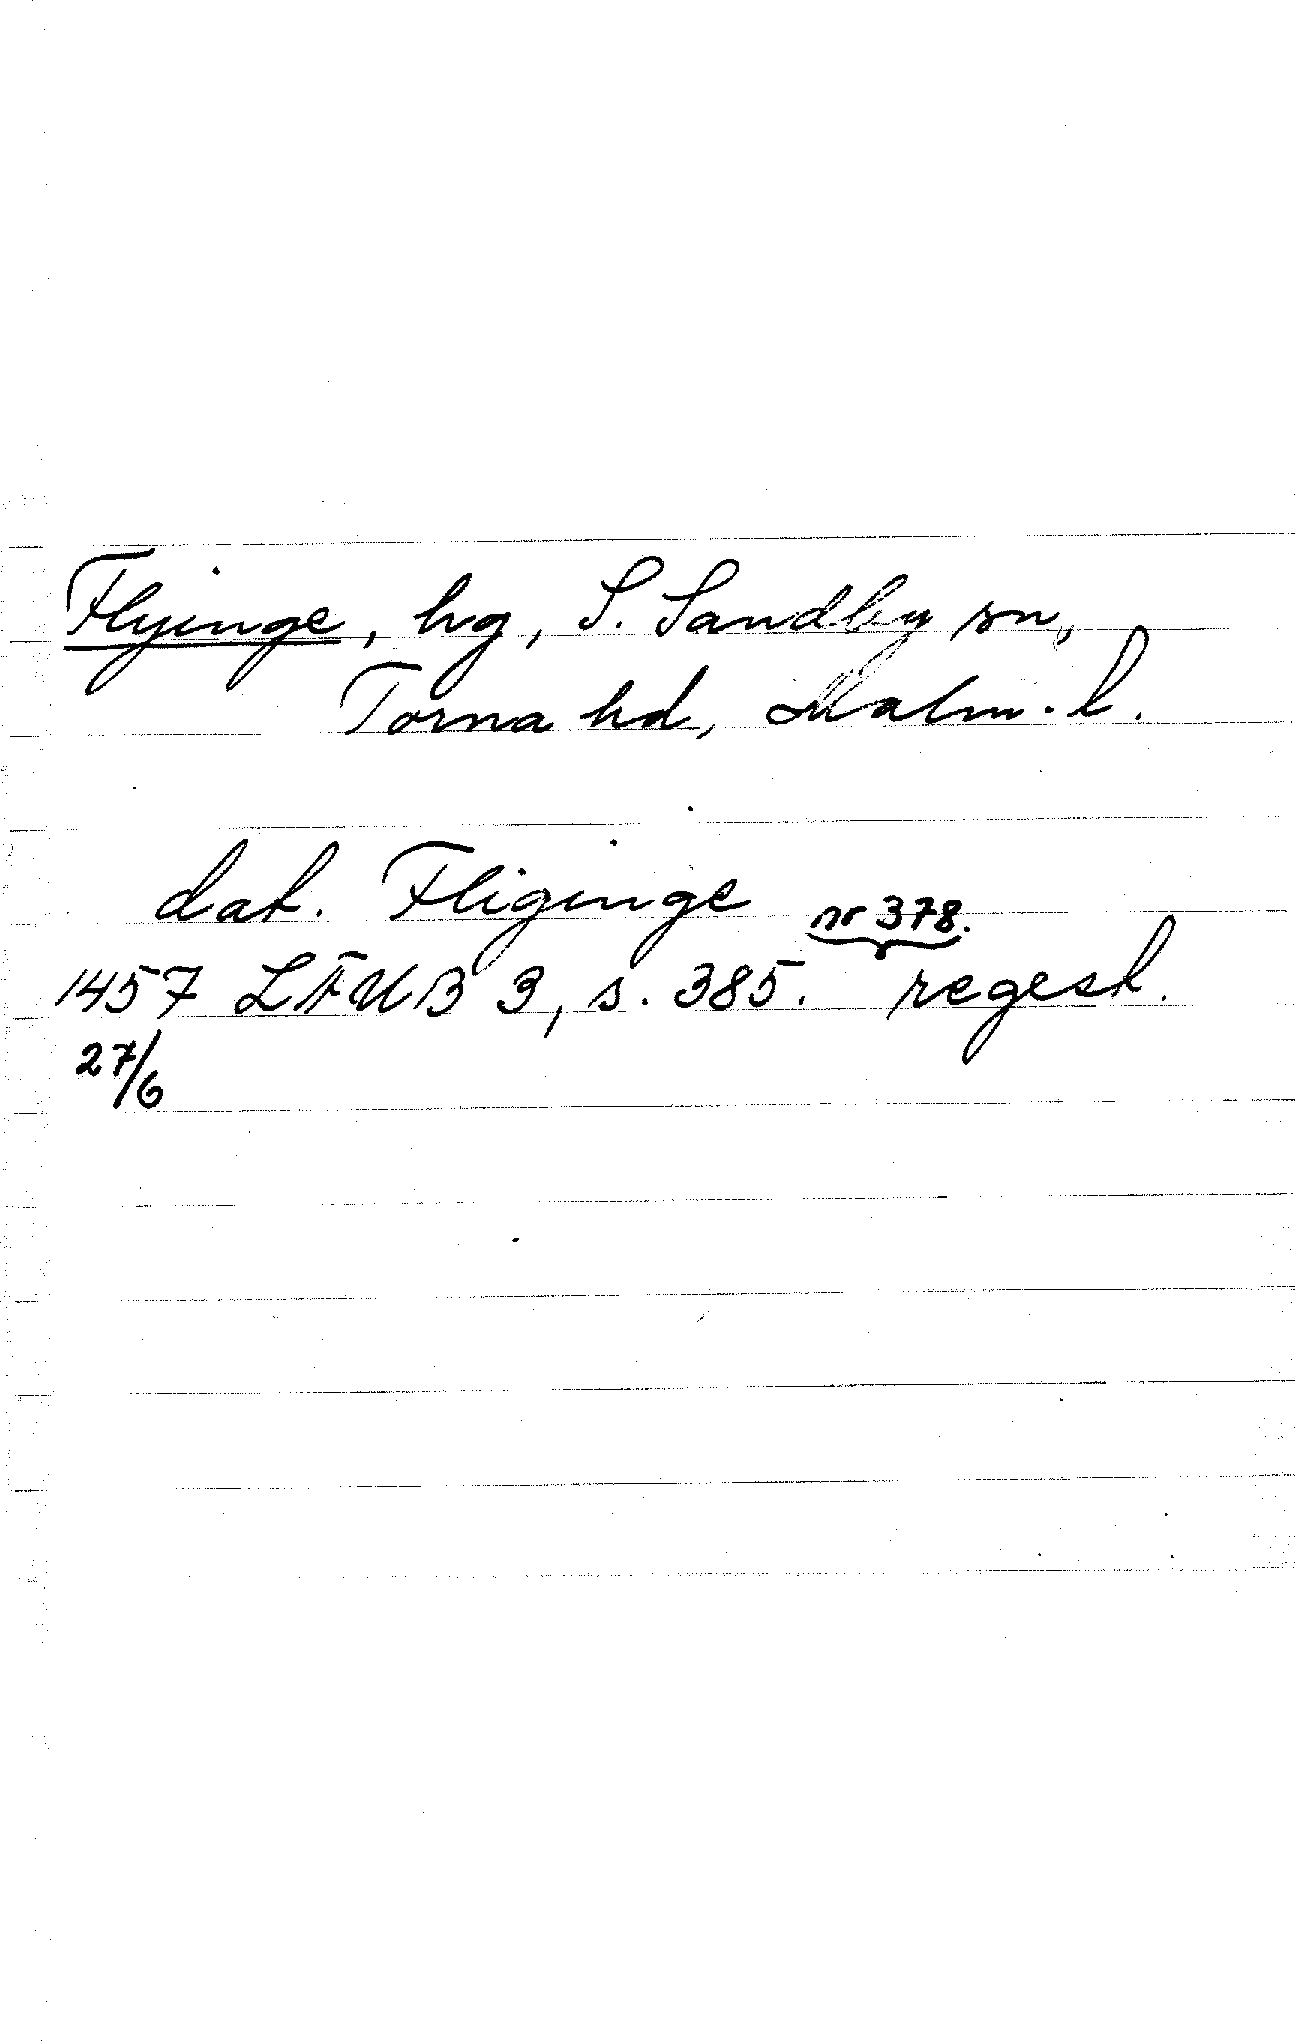 Flyinge, hg, S. Sandby sn,
Torna hd, Malm. l.
dat. Fliginge
nr 378.
1457 LÄUB 3, s. 385. regest.
27/6